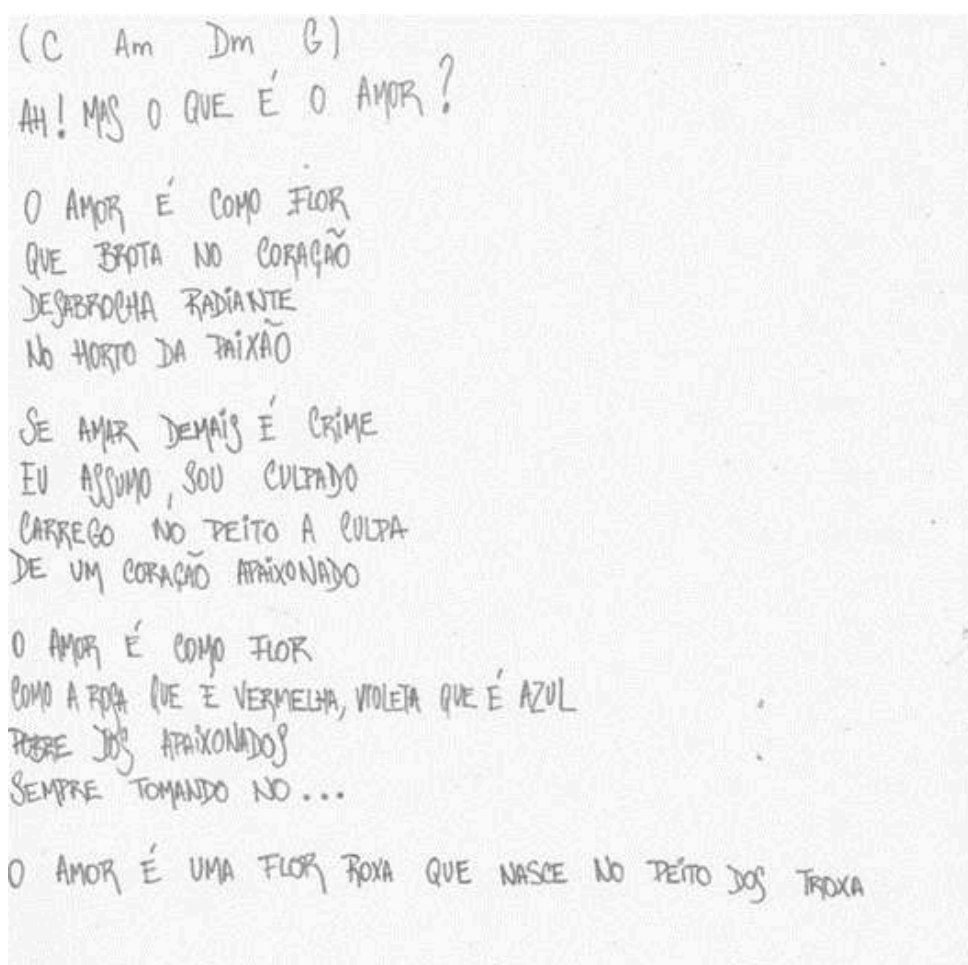 (C Am Dm G)
AH! MAS O QUE É O AMOR?
O AMOR É COMO FLOR
QUE BROTA NO CORAÇÃO
DESABROCHA RADIANTE
NO HORTO DA PAIXÃO
SE AMAR DEMAIS É CRIME
EU ASSUMO, SOU CULPADO
CARREGO NO PEITO A CULPA
DE UM CORAÇÃO APAIXONADO
O AMOR É COMO FLOR
COMO A ROSA QUE É VERMELHA, VIOLETA QUE É AZUL
POBRE DOS APAIXONADOS
SEMPRE TOMANDO NO...
O AMOR É UMA FLOR ROXA QUE NASCE NO PEITO DOS TROXA